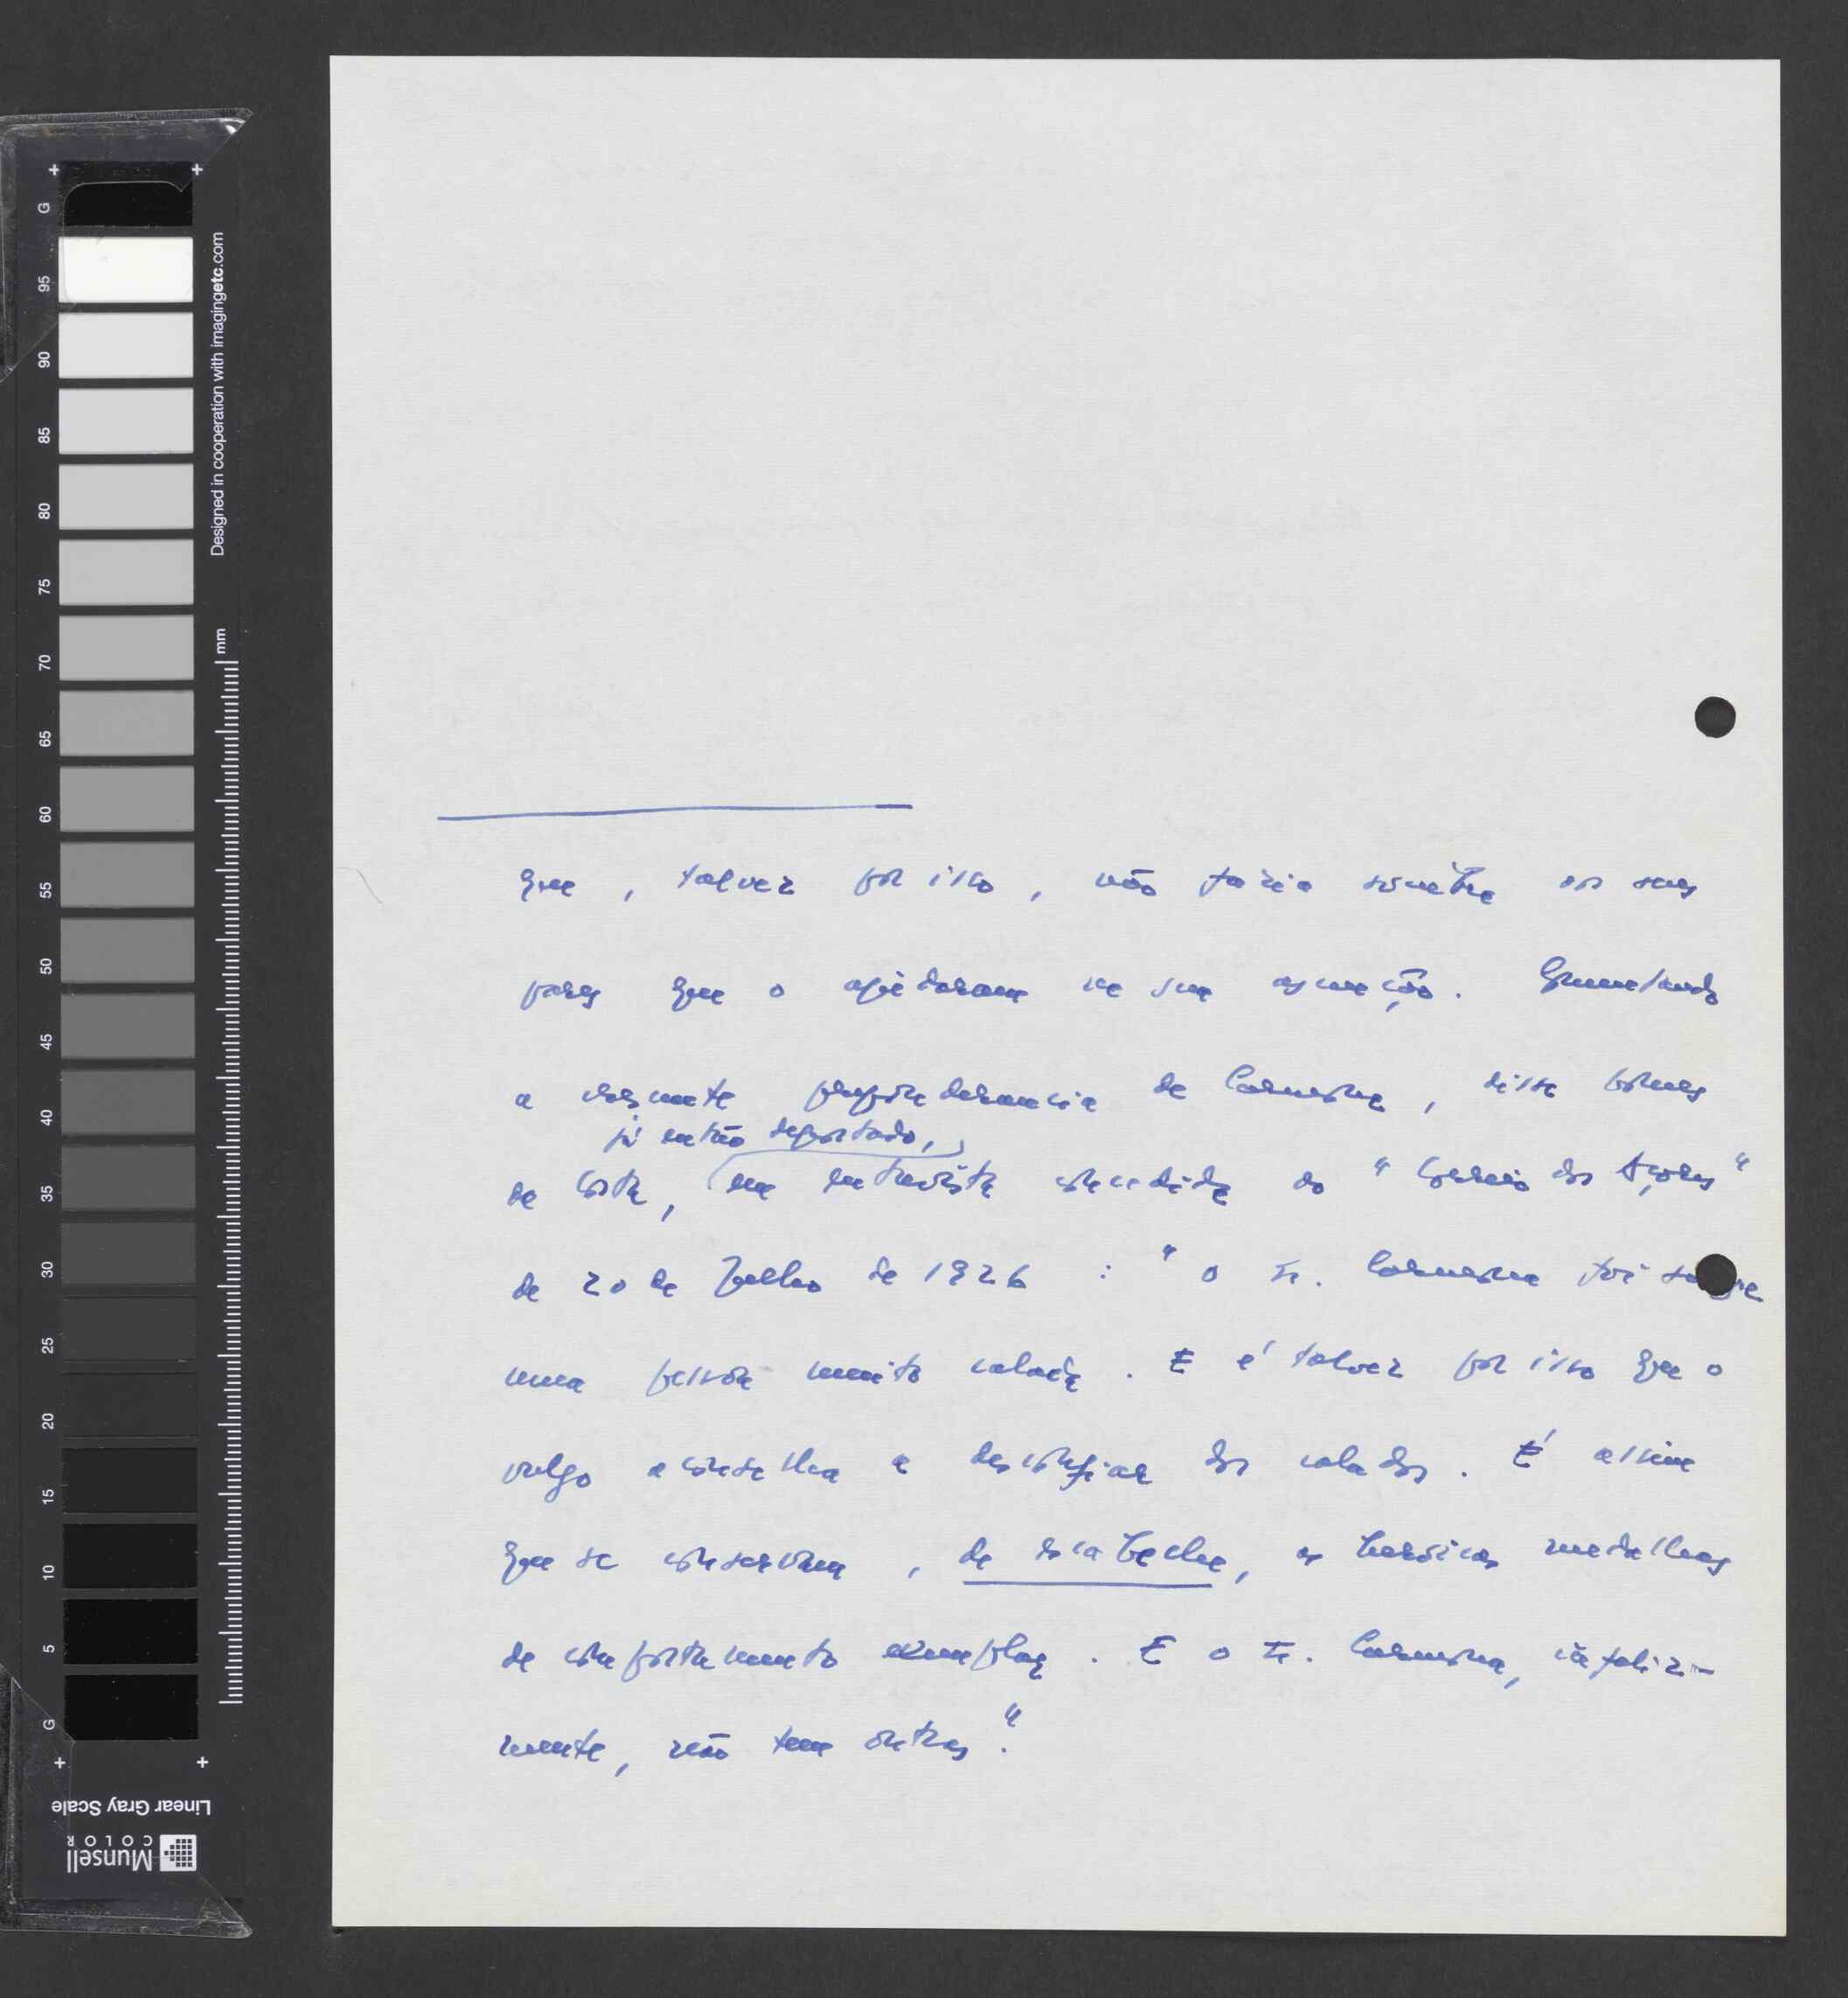 que, talvez por isso, não fazia sombra aos seus
pares que o ajudaram na sua ascenção. Comentando
a crescente preponderancia de Carmona, disse Gomes
já então deportado,
da Costa, em entrevista concedida ao "Correio dos Açores"
de 20 de Julho de 1926 : "o Sr. Carmona foi sempre
uma pessoa muito calada. E é talvez por isso que o
vulgo aconselha a desconfiar dos calados. É assim
que se conservam, de escabeche, as heróicas medalhas
de comportamento exemplar. E o Sr. Carmona, infeliz-
mente, não tem outras."
G 95 90 85 80 75 70 65 60 55 50 45 40 35 30 25 20 15 10 5 G
Designed in cooperation with imagingetc.com
mm
Linear Gray Scale
Munsell
COLOR